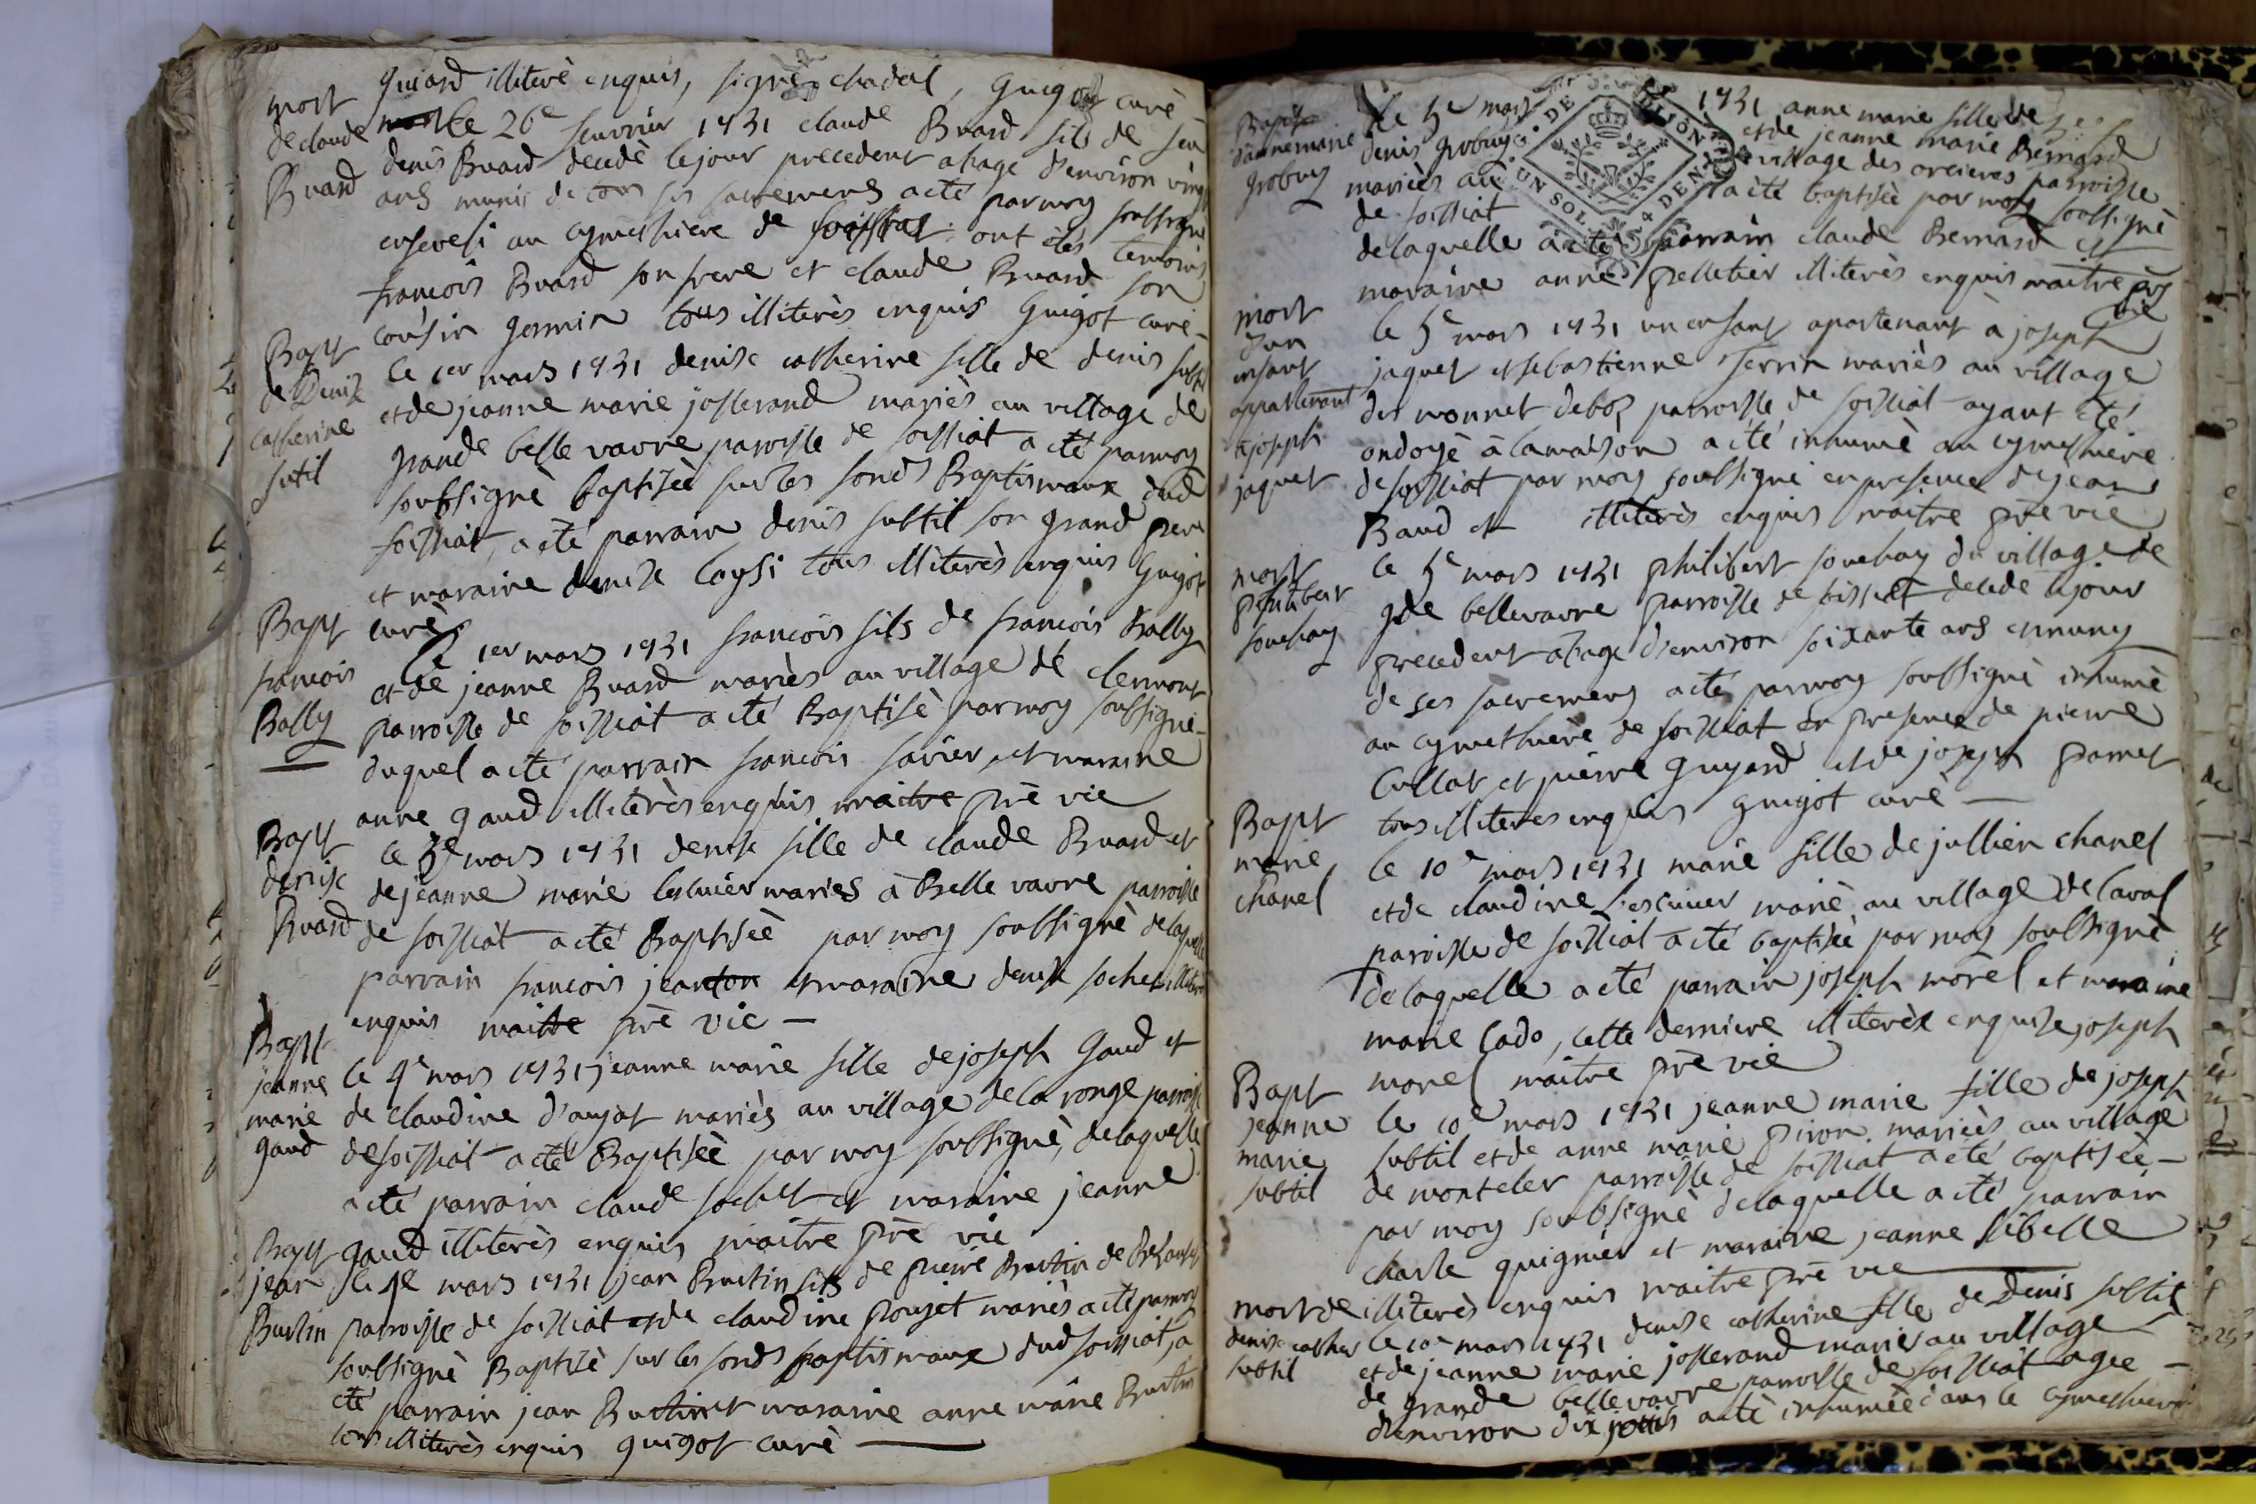 mort
de claude
Buard
guiard illiterè enquis, signè chadal, Guigot curè
le 26e feuvrier 1731 claude Buard fils de feu
denis Buard decedè le jour precedent a l'age d'environ vingt
ans munis de tous ses sacremens a eté par moy soussignè
enseveli au cymethiere de soissiat ont étés temoins
francois Buard son frere et claude Buard son
cousin germin tous illiterès enquis Guigot curè
Bapt
de Denise
catherine
sutil
le 1er mars 1731 denise catherine fille de denis subtil
et de jeanne marie josserand mariès au village de
grande belle vavre paroisse de soissiat a eté par moy
soubsignè baptiseè sur les fonds Baptismaux dud
soissiat, a eté parrain denis subtil son grand pere
et maraine denise loysi tous illiterès enquis Guigot
curè
Bapt
francois
Bally
le 1er mars 1731 francois fils de francois Bally
et de jeanne Buard mariès au village de clermont
parroisse de soissiat a eté Baptisè par moy soussignè
duquel a eté parrain francois favier et maraine
anne gaud illiterès enquis maitre prë vie
Bapt
denise
Buard
le 3e mars 1731 denise fille de claude Buard et
de jeanne marie lescuier mariès à Belle vavre parroisse
de soissiat a eté Baptiseè par moy soussignè de laquelle
parrain francois jeanton et maraine denise sochet illiterès
enquis maitre prë vie
Bapt
jeanne
marie
gaud
le 4e mars 1731 jeanne marie fille de joseph Gaud et
de claudine d'aujat mariès au village de la ronge parroisse
de soissiat a eté Baptiseè par moy soussignè, de laquelle
a eté parrain claude sochet et maraine jeanne
gaud illiterès enquis maitre prë vie
Bapt
jean
Burtin
le 4e mars 1731 jean Burtin fils de pierre Burtin de
parroisse de soissiat et de claudine poujet mariès a eté par moy
soussignè Baptizè sur les fonds baptismaux dud soissiat, a
eté parrain jean Burtin et maraine anne marie Burtin
tous illiterès enquis guigot curè
Bapt
d'anne marie
grobuy
le 5e mars 1731 anne marie fille de
denis grobuy et de jeanne marie Bernard
mariès au village des orcieres parroisse
de soissiat a eté baptiseè par moy soussignè
de laquelle a eté parrain claude Bernard et
maraine anne pelletier illiterès enquis maitre prë
vie
DE DIJON
UN SOL 4 DEN
mort
d'un
enfant
appartenant
à joseph
jaquet
le 5e mars 1731 un enfant apartenant à joseph
jaquet et sebastienne ferrin mariès au village
du monnet debos parroisse de soissiat ayant été
ondoyé à la maison a eté inhumè au cymethiere
de soissiat par moy soussignè en presence de jean
Baud et illiterès enquis maitre prë vie
mort
philibert
souchay
le 5e mars 1731 philibert souchay du village de
gde bellevavre parroisse de soissiat decede le jour
precedent a l'age d'environ soixante ans enmuny
de ses sacremens a eté par moy soussignè inhumè
au cymethière de soissiat en presence de pierre
Collat et pierre Guyard et de joseph pamet
tous illiteres enquis guigot curè
Bapt
marie
chanel
le 10e mars 1731 marie fille de jullien chanel
et de claudine lescuier mariè au village de laval
paroisse de soissiat a eté baptiseè par moy soussignè
de laquelle a eté parrain joseph morel et maraine
marie lado, cette derniere illiterèe enquise joseph
morel maitre prë vie
Bapt
jeanne
marie
subtil
le 10e mars 1731 jeanne marie fille de joseph
subtil et de anne marie piron mariès au village
de monteler parroisse de soissiat a eté baptiseè
par moy soubsignè de laquelle a eté parrain
charle guignier et maraine jeanne sibelle
illiterès enquis maitre prë vie
mort de
denise cather
subtil
le 10e mars 1731 denise catherine fille de Denis subtil
et de jeanne marie josserand mariès au village
de grande bellevavre parroisse de soissiat agee
d'environ dix jours a eté inhumeè dans le cymethiere